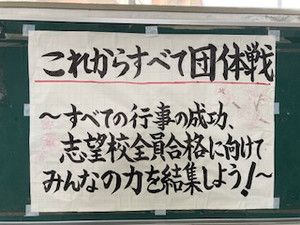 これからすべて団体戦
～すべての行事の成功、
志望校全員合格に向けて
みんなの力を結集しよう!～